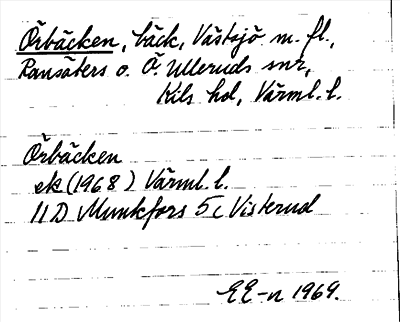 Örbäcken, bäck, Västsjö m. fl.,
Ransäters o. Ö. Ulleruds snr,
Kils hd, Värml. l.
Örbäcken
ek (1968) Värml. l.
11D Munkfors 5c Visterud
EE-n 1969.